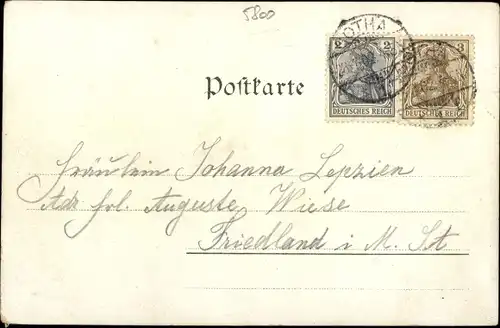 5800
GOTHA
2 2
3 3
Postkarte
DEUTSCHES REICH
DEUTSCHES REICH
Fräulein Johanna Lepzien
Adr frl. Auguste Wiese
Friedland i. M. St